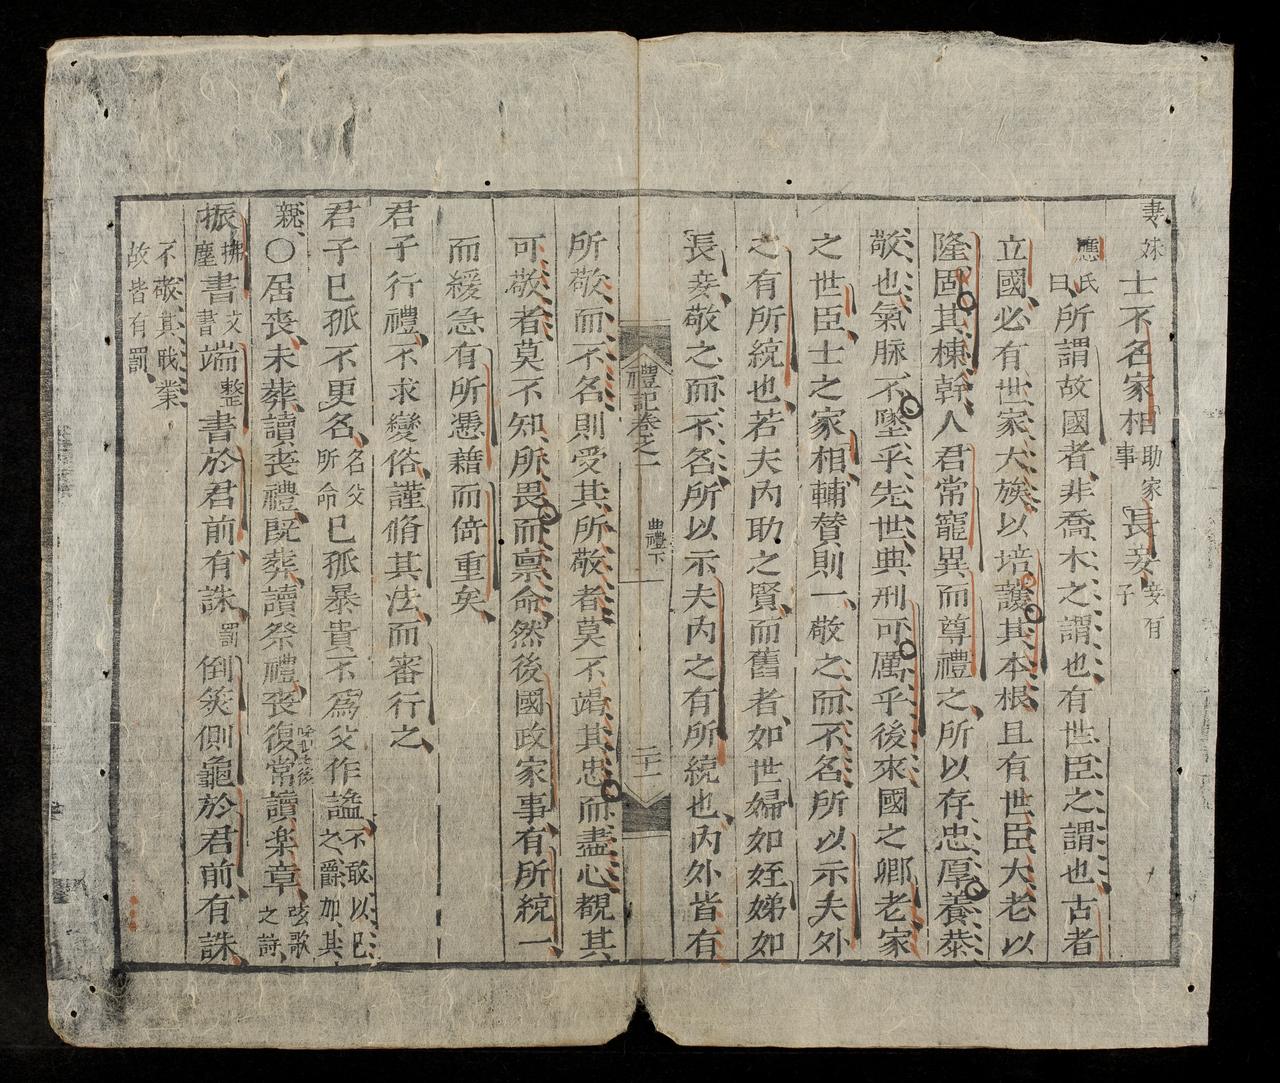 妻妹士不名家相助家事長妾妾有子
應氏曰所謂故國者非喬木之謂也有世臣之謂也古者
立國必有世家大族以培護其本根且有世臣大老以
隆固其棟幹人君常寵異而尊禮之所以存忠厚養恭
敬也氣脉不墜乎先世典刑可厲乎後來國之卿老家
之世臣士之家相輔替則一敬之而不名所以示夫外
之有所統也若夫內助之賢而舊者如世婦如姪娣如
長妾敬之而不名所以示夫內之有所統也內外皆有
禮記卷之一 曲禮下 二十一
所敬而不名則受其所敬者莫不竭其忠而盡心覩其
可敬者莫不知所畏而禀命然後國政家事有所統一
而緩急有所憑藉而倚重矣
君子行禮不求變俗謹脩其法而審行之
君子已孤不更名名父所命已孤暴貴不為父作謚不敢以己之爵加其
親〇居喪未葬讀喪禮既葬讀祭禮喪復常讀樂章弦歌之詩
振拂塵書文書端整書於君前有誅罰倒筴側龜於君前有誅
不敬其職業故皆有罰